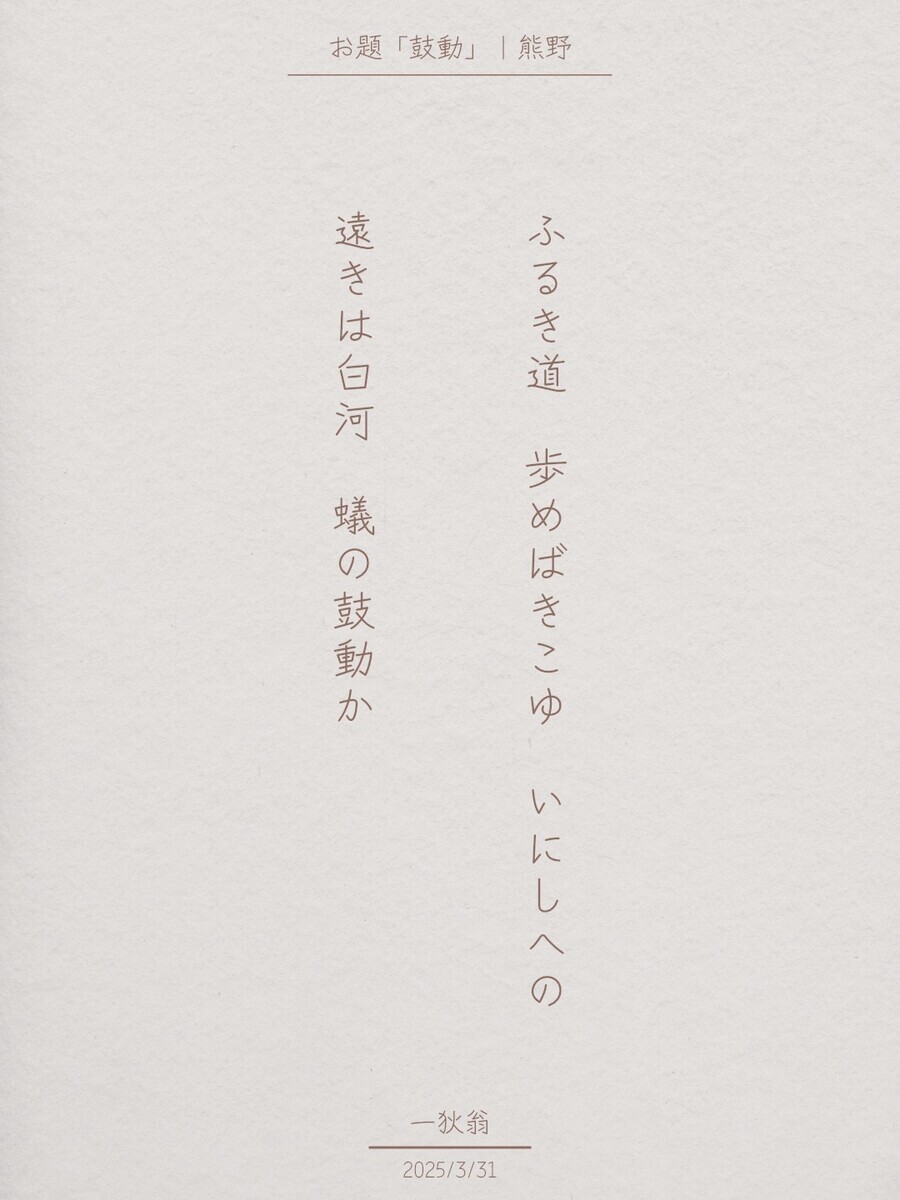 お題「鼓動」｜熊野
ふるき道　歩めばきこゆ　いにしへの
遠きは白河　蟻の鼓動か
一狄翁
2025/3/31